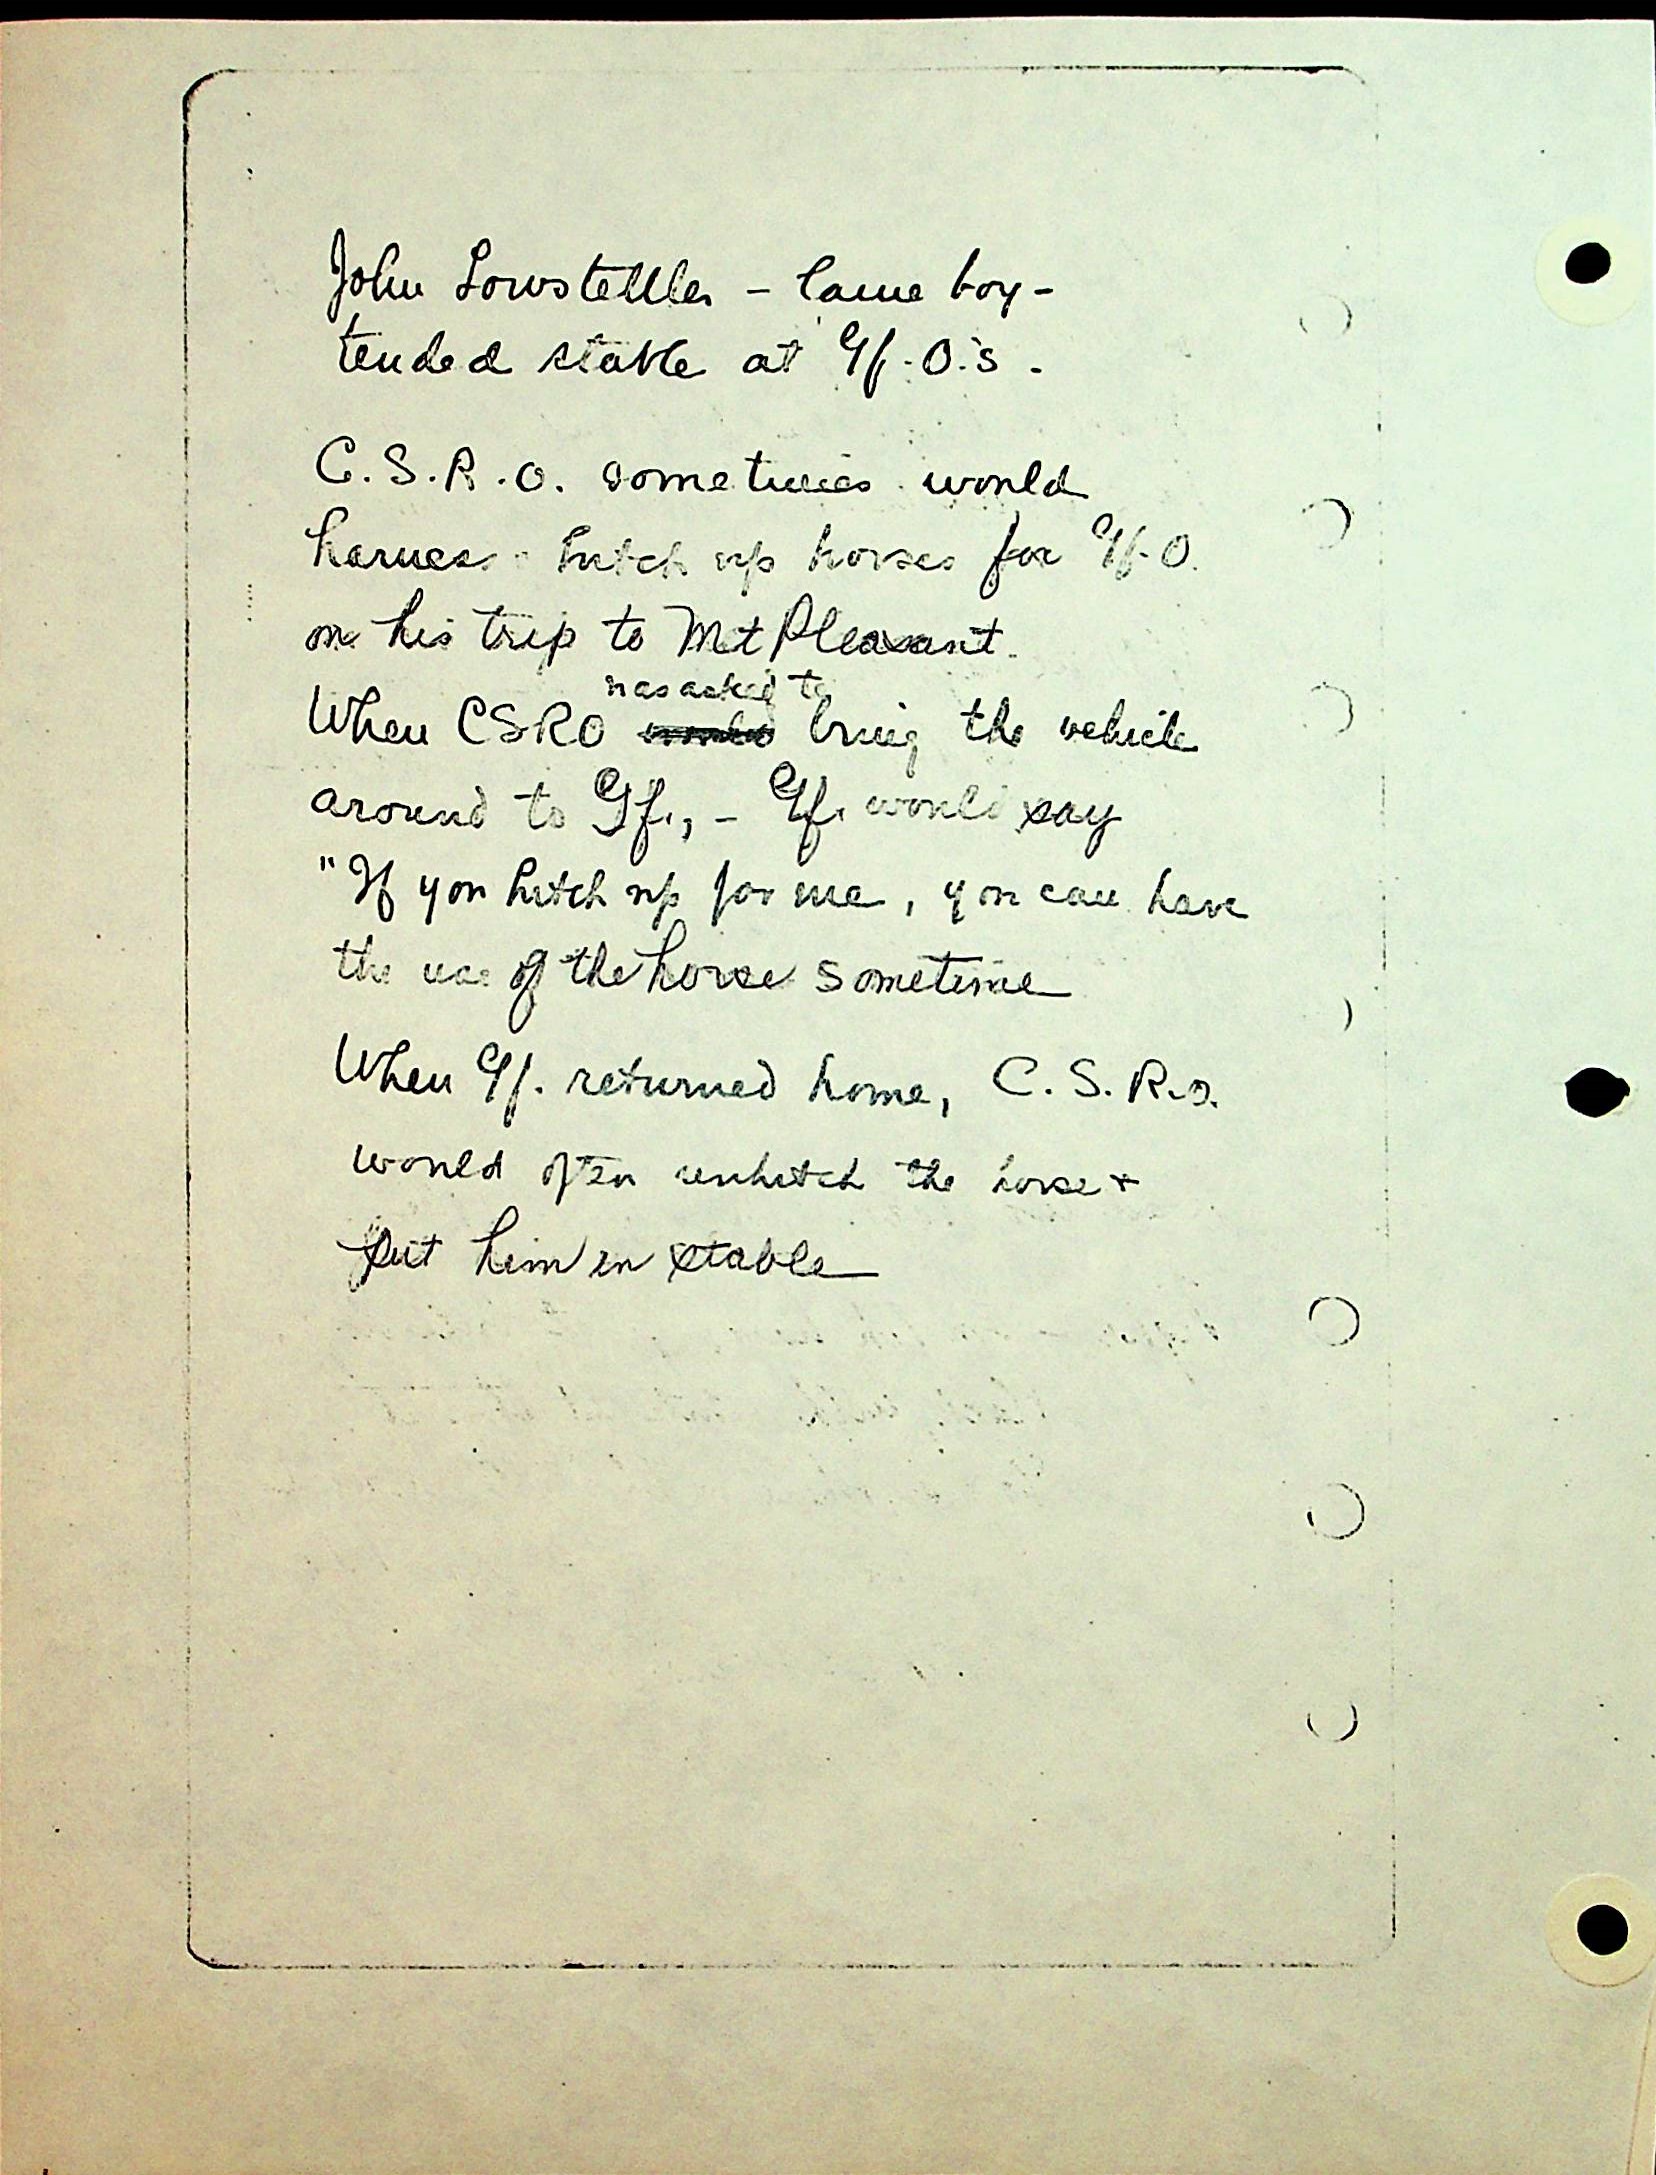 John Lowstettler - lame boy -
tended stable at Gf. O.'s -
C.S.R.O. sometimes would
harness - hitch up horses for Gf. O.
on his trip to Mt Pleasant.
was asked to
When CSRO would bring the vehicle
around to Gf., - Gf. would say
"If you hitch up for me, you can have
the use of the horse sometime
When Gf. returned home, C.S.R.O.
would often unhitch the horse +
put him in stable